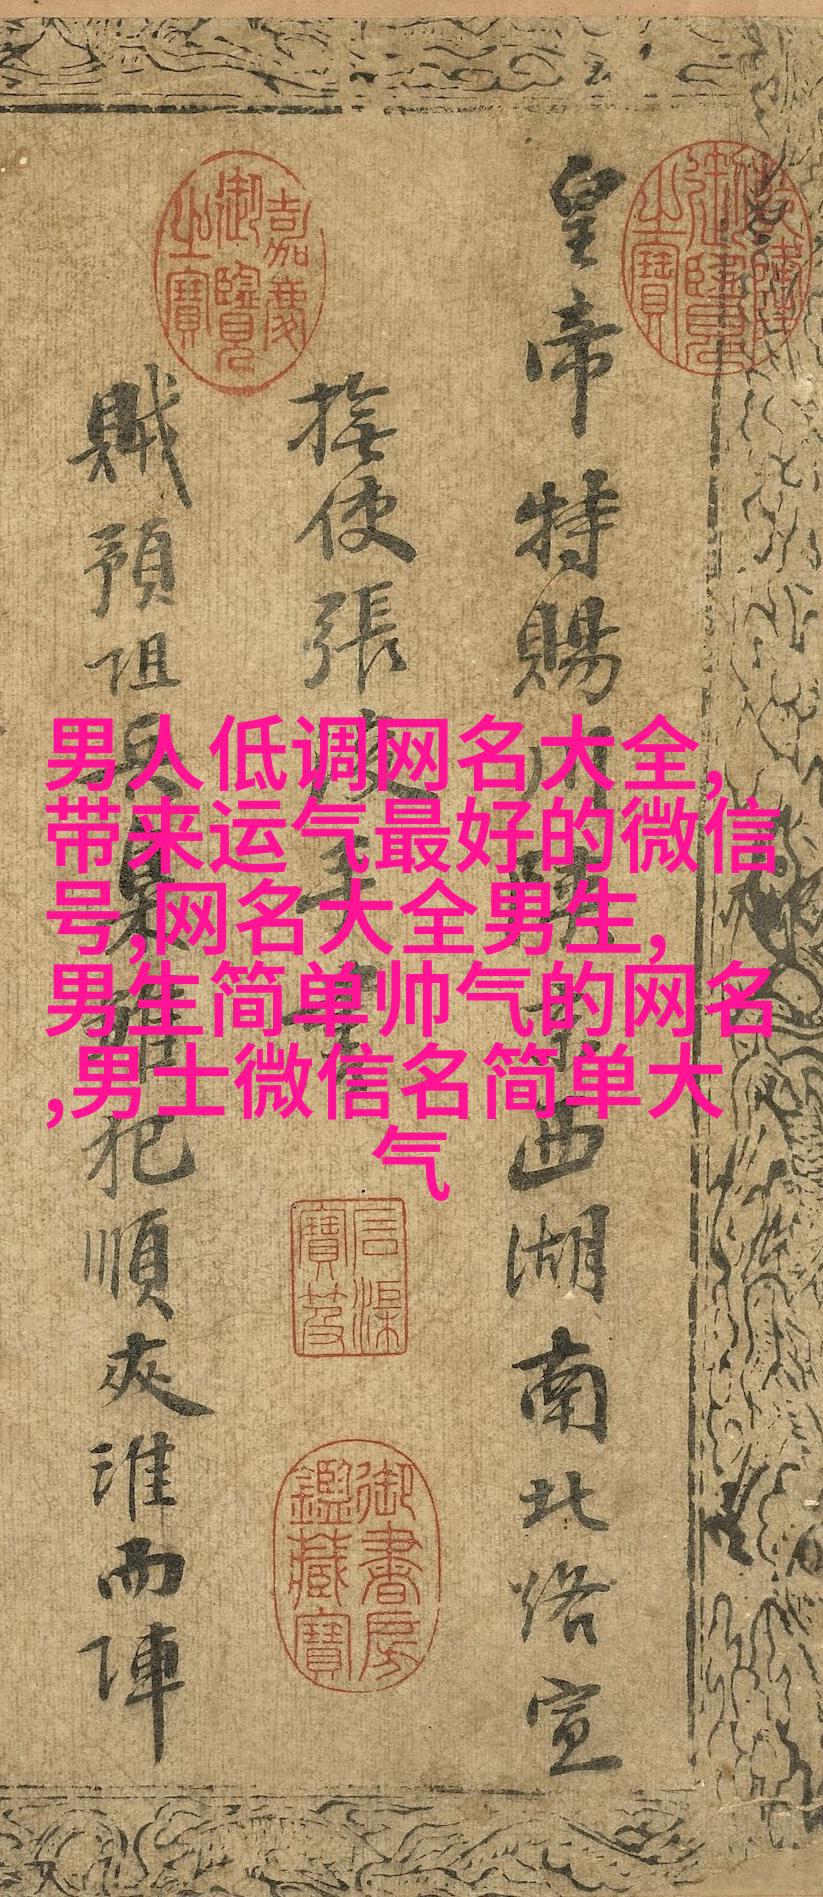 男人低调网名大全,
带来运气最好的微信
号,网名大全男生,
男生简单帅气的网名
,男士微信名简单大
气
皇帝特賜西湖南北路宣
撫使張
賊預阻兵犯順夾淮而陣
嘉慶御覽之寶
乾隆御覽之寶
石渠寶笈
御書房鑑藏寶